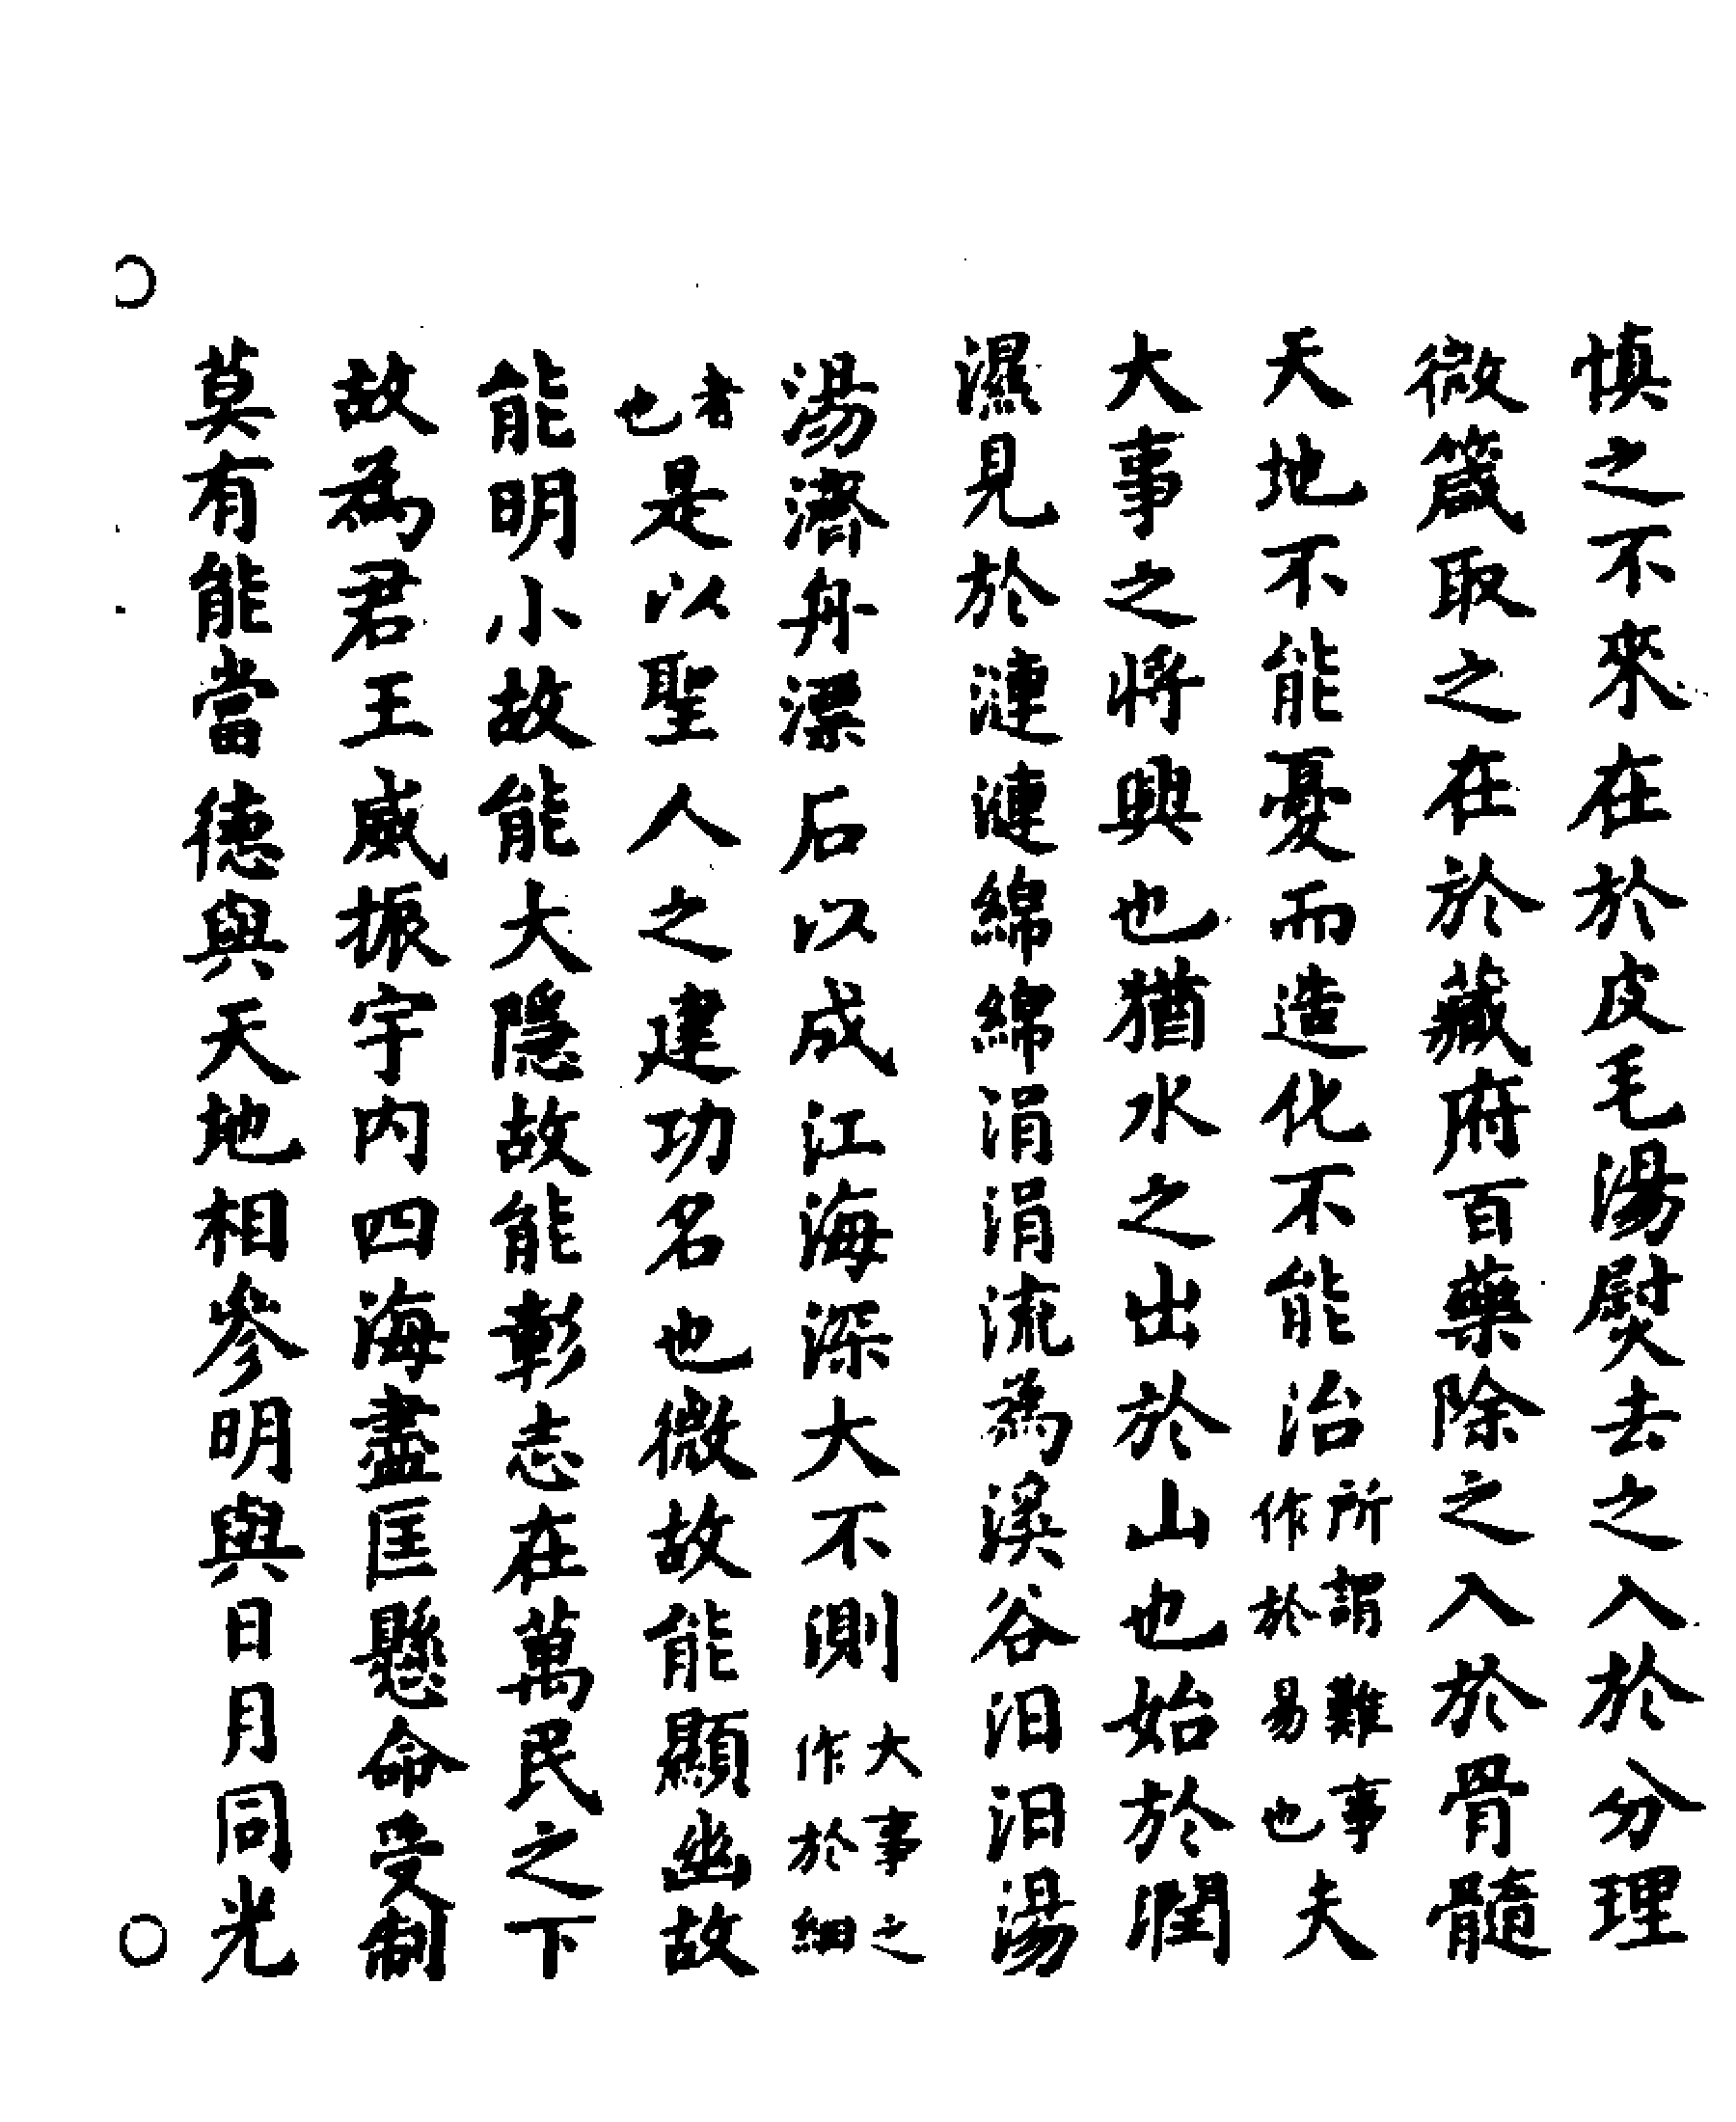 慎之不來在於皮毛湯熨去之入於分理
微箴取之在於藏府百藥除之入於骨髓
天地不能憂而造化不能治所謂難事作於易也夫
大事之將興也猶水之出於山也始於潤
濕見於漣漣綿綿涓涓流為溪谷汩汩湯
湯濟舟漂石以成江海深大不測大事之作於細
者也是以聖人之建功名也微故能顯幽故
能明小故能大隱故能彰志在萬民之下
故為君王威振宇内四海盡匡懸命受制
莫有能當德與天地相參明與日月同光